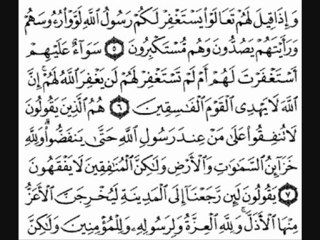 وَإِذَا قِيلَ لَهُمْ تَعَالَوْا۟ يَسْتَغْفِرْ لَكُمْ رَسُولُ ٱللَّهِ لَوَّوْا۟ رُءُوسَهُمْ
وَرَأَيْتَهُمْ يَصُدُّونَ وَهُم مُّسْتَكْبِرُونَ ٥ سَوَآءٌ عَلَيْهِمْ
أَسْتَغْفَرْتَ لَهُمْ أَمْ لَمْ تَسْتَغْفِرْ لَهُمْ لَن يَغْفِرَ ٱللَّهُ لَهُمْ إِنَّ
ٱللَّهَ لَا يَهْدِى ٱلْقَوْمَ ٱلْفَٰسِقِينَ ٦ هُمُ ٱلَّذِينَ يَقُولُونَ
لَا تُنفِقُوا۟ عَلَىٰ مَنْ عِندَ رَسُولِ ٱللَّهِ حَتَّىٰ يَنفَضُّوا۟ وَلِلَّهِ
خَزَآئِنُ ٱلسَّمَٰوَٰتِ وَٱلْأَرْضِ وَلَٰكِنَّ ٱلْمُنَٰفِقِينَ لَا يَفْقَهُونَ
٧ يَقُولُونَ لَئِن رَّجَعْنَآ إِلَى ٱلْمَدِينَةِ لَيُخْرِجَنَّ ٱلْأَعَزُّ
مِنْهَا ٱلْأَذَلَّ وَلِلَّهِ ٱلْعِزَّةُ وَلِرَسُولِهِۦ وَلِلْمُؤْمِنِينَ وَلَٰكِنَّ